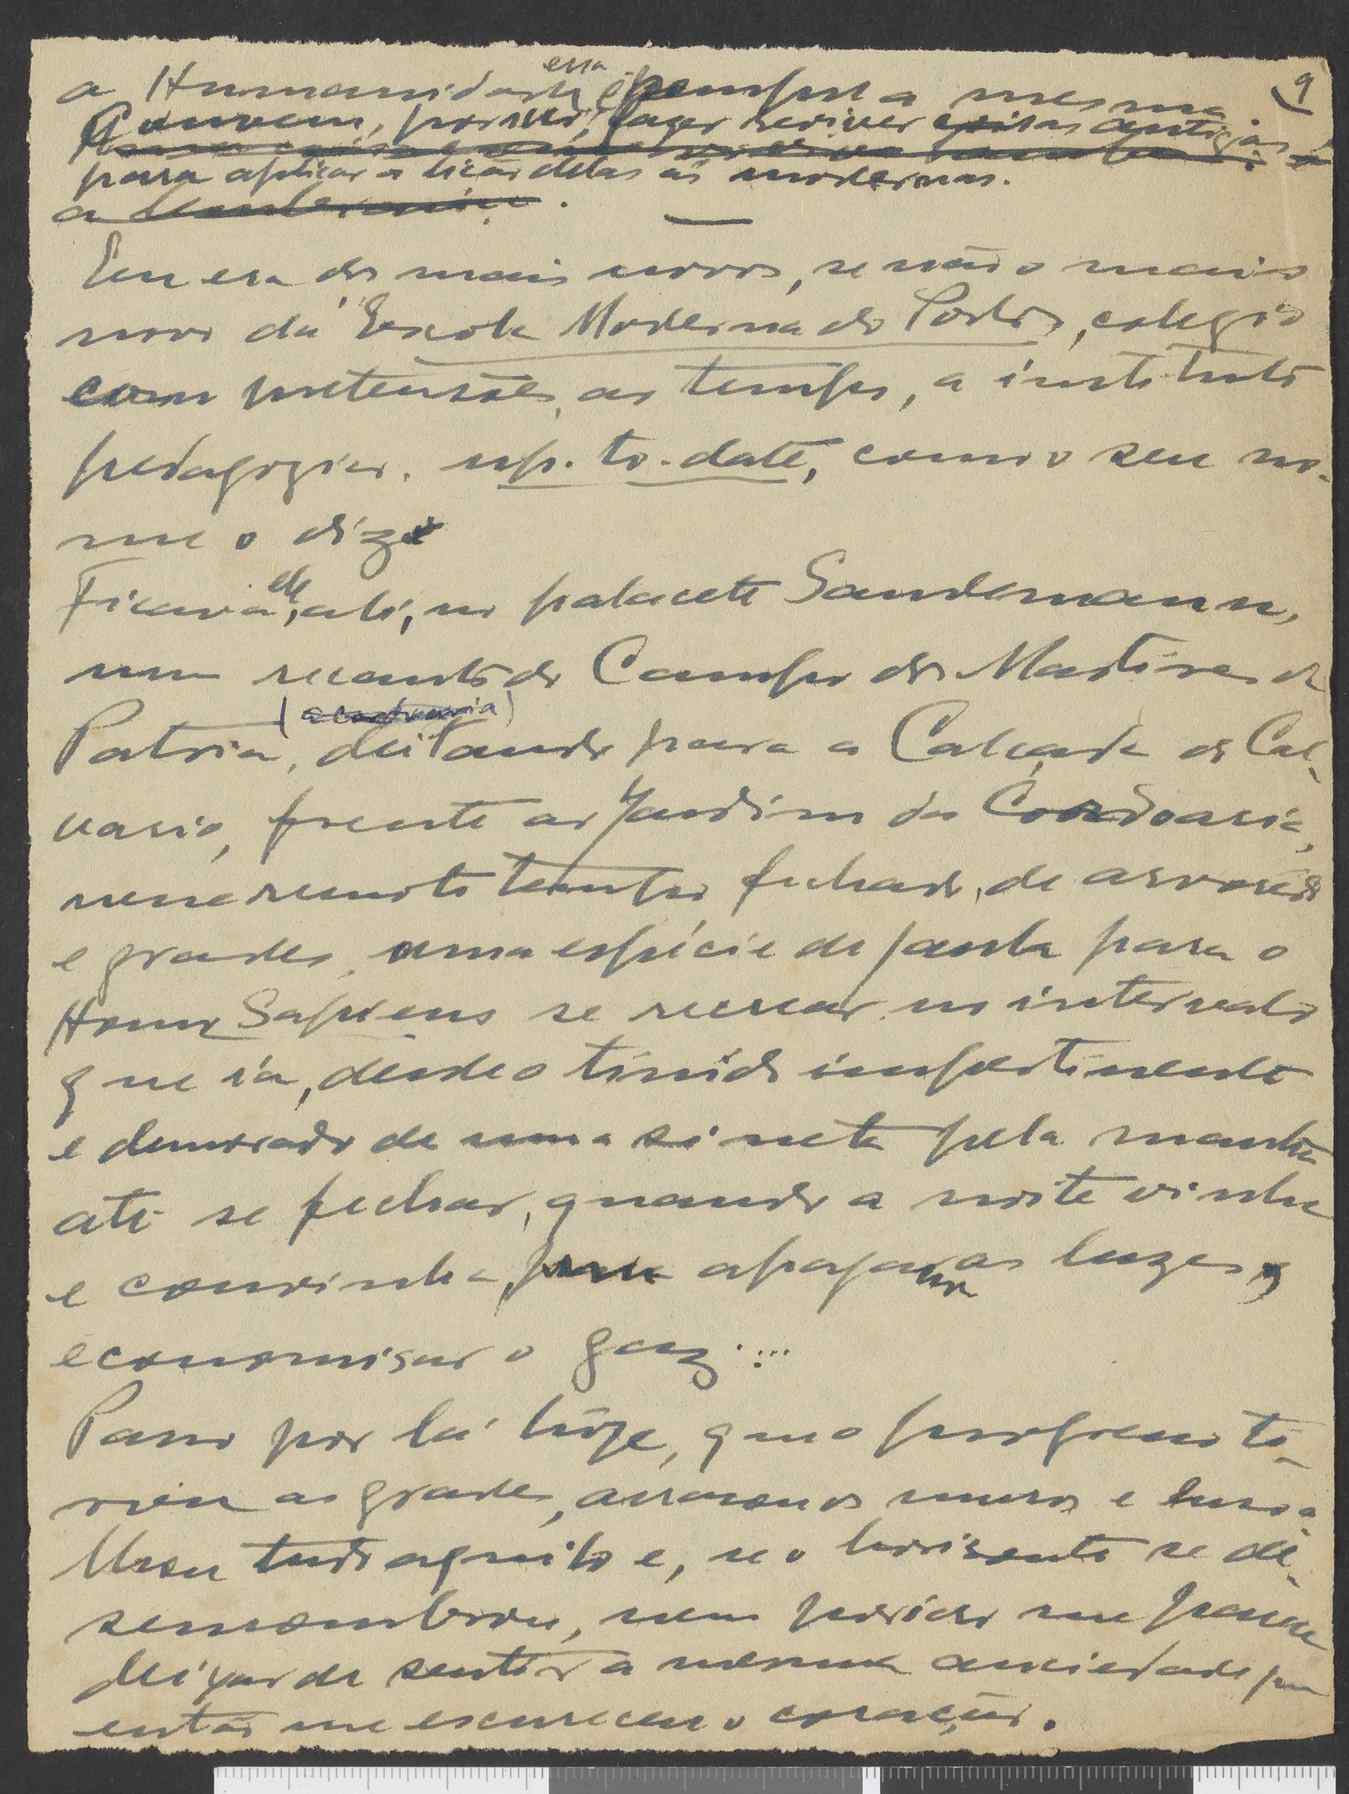 9
a Humanidade essa é sempre a mesma
Convem, por isso, fazer reviver coisas antigas
para aplicar a lição delas ás modernas.
Eu era dos mais novos, se não o mais
novo da Escola Moderna do Porto, colegio
com pretensões, ao tempo, a instituto
pedagogico up-to-date, como o seu no-
me o diz
Ficava ele, ali, no palacete Sandemann,
num recanto do Campo dos Martires da
Patria, deitando para a Calçada do Cal-
vario, frente ao Jardim da Cordoaria,
nesse remoto tempo fechado, de arvoredo
e grades, uma espécie de jaula para o
Homo Sapiens se recrear no intervalo
que ia, desde o tinido impertinente
e demorado de uma sineta pela manhã
até se fechar, quando a noite vinha
e convinha apagarem as luzes,
economisar o gaz....
Passo por lá hoje, que o progresso ti-
rou as grades, arrasou os muros e
tudo aquilo e, se o horisonte se de-
sensombrou, nem por isso me
deixar de sentir a mesma anciedade que
então me escureceu o coração.